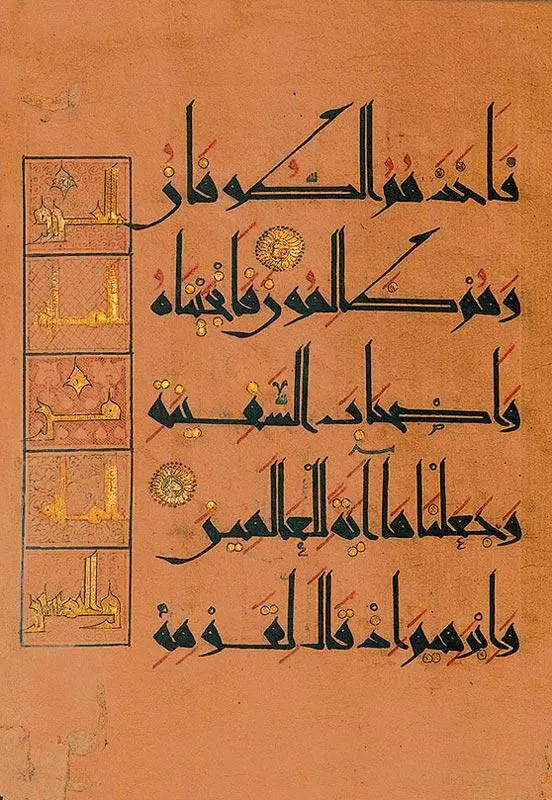 فَاَخَذَهُمُ الطُّوفَانُ
وَهُمْ ظَالِمُونَ فَاَنْجَيْنَاهُ
وَاَصْحَابَ السَّفِينَةِ
وَجَعَلْنَاهَا آيَةً لِلْعَالَمِينَ
وَاِبْرهِيمَ اِذْ قَالَ لِقَوْمِهِ